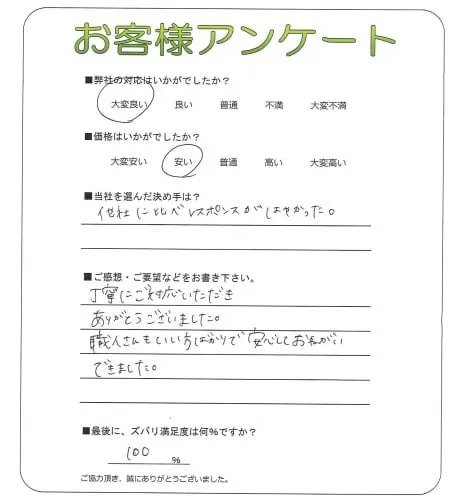 お客様アンケート
■弊社の対応はいかがでしたか?
大変良い 良い 普通 不満 大変不満
■価格はいかがでしたか?
大変安い 安い 普通 高い 大変高い
■当社を選んだ決め手は?
他社に比べレスポンスがはやかった。
■ご感想・ご要望などをお書き下さい。
丁寧にご対応いただき
ありがとうございました。
職人さんもいい方ばかりで安心しておねがい
できました。
■最後に、ズバリ満足度は何%ですか?
100 %
ご協力頂き、誠にありがとうございました。